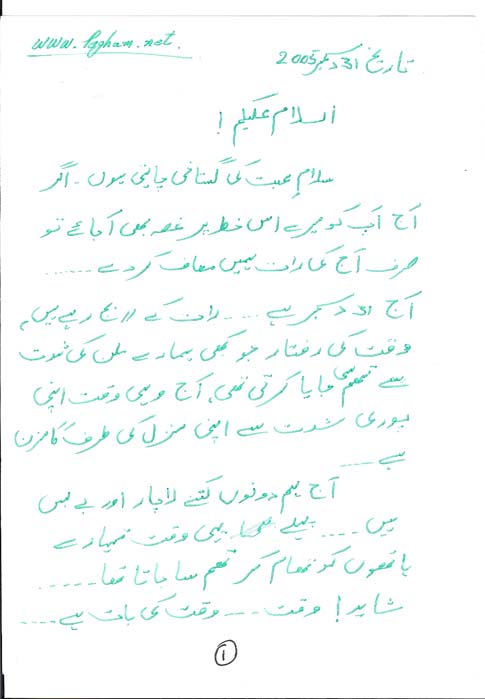 www.Pagham.net.
تاریخ 31 دسمبر 2005
السلام علیکم !
سلامِ محبت کی گستاخی چاہتی ہوں ۔ اگر
آج آپ کو میرے اس خط پر غصہ بھی آ جائے تو
صرف آج کی رات ہمیں معاف کر دے ......
آج 31 دسمبر ہے .... رات کے 11 بج رہے ہیں ,
وقت کی رفتار جو کبھی ہمارے ملن کی شدت
سے تھم سی جایا کرتی تھی , آج وہی وقت اپنی
پوری شدت سے اپنی منزل کی طرف گامزن
ہے ....
آج ہم دونوں کتنے لاچار اور بے بس
ہیں .... پہلے یہی وقت تمہارے
ہاتھوں کو تھام کر تھم سا جاتا تھا .....
شاید ! وقت ... وقت کی بات ہے ....
1